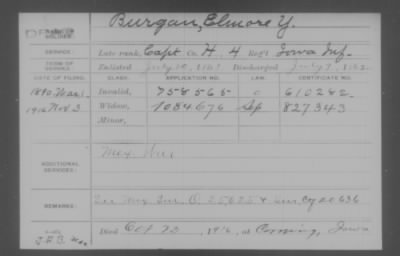 Burgan, Elmore Y.
SOLDIER
SERVICE: Late rank, Capt Co. H. 4 Reg't Iowa Inf.
TERM OF SERVICE: Enlisted July 10, 1861 Discharged July 7, 1862
DATE OF FILING. CLASS. APPLICATION NO. LAW. CERTIFICATE NO.
1890 Invalid, 758565 610282
1916 Nov 3 Widow, 1084676 827343
Minor,
ADDITIONAL SERVICES: Mex. War
REMARKS: See Mex Sur. O. 25625 &
Died Oct 23, 1916, at Corning, Iowa